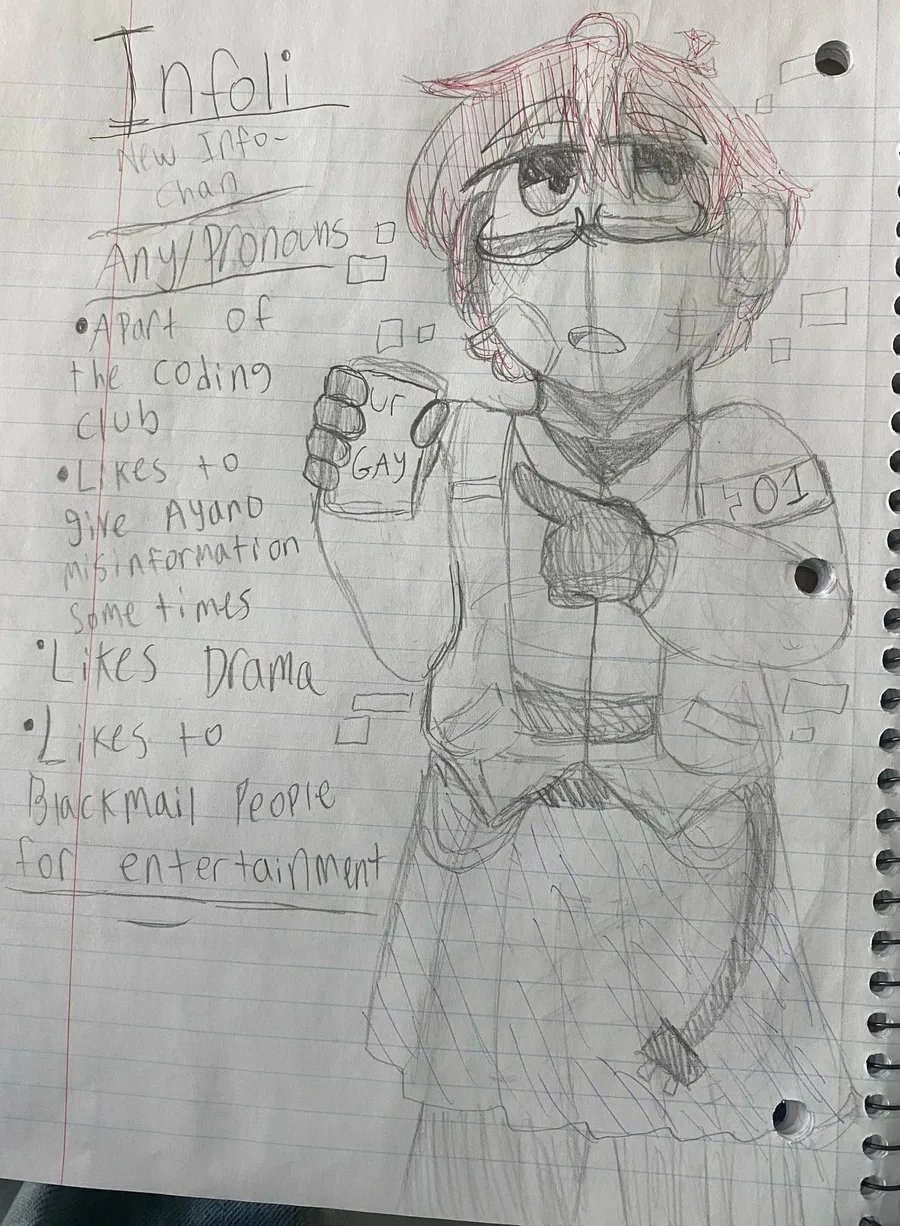 Infoli
New Info-
Chan
Any/Pronouns
•Apart of
the coding
club
•Likes to
give Ayano
misinformation
some times
•Likes Drama
•Likes to
Blackmail People
for entertainment
ur
GAY
01